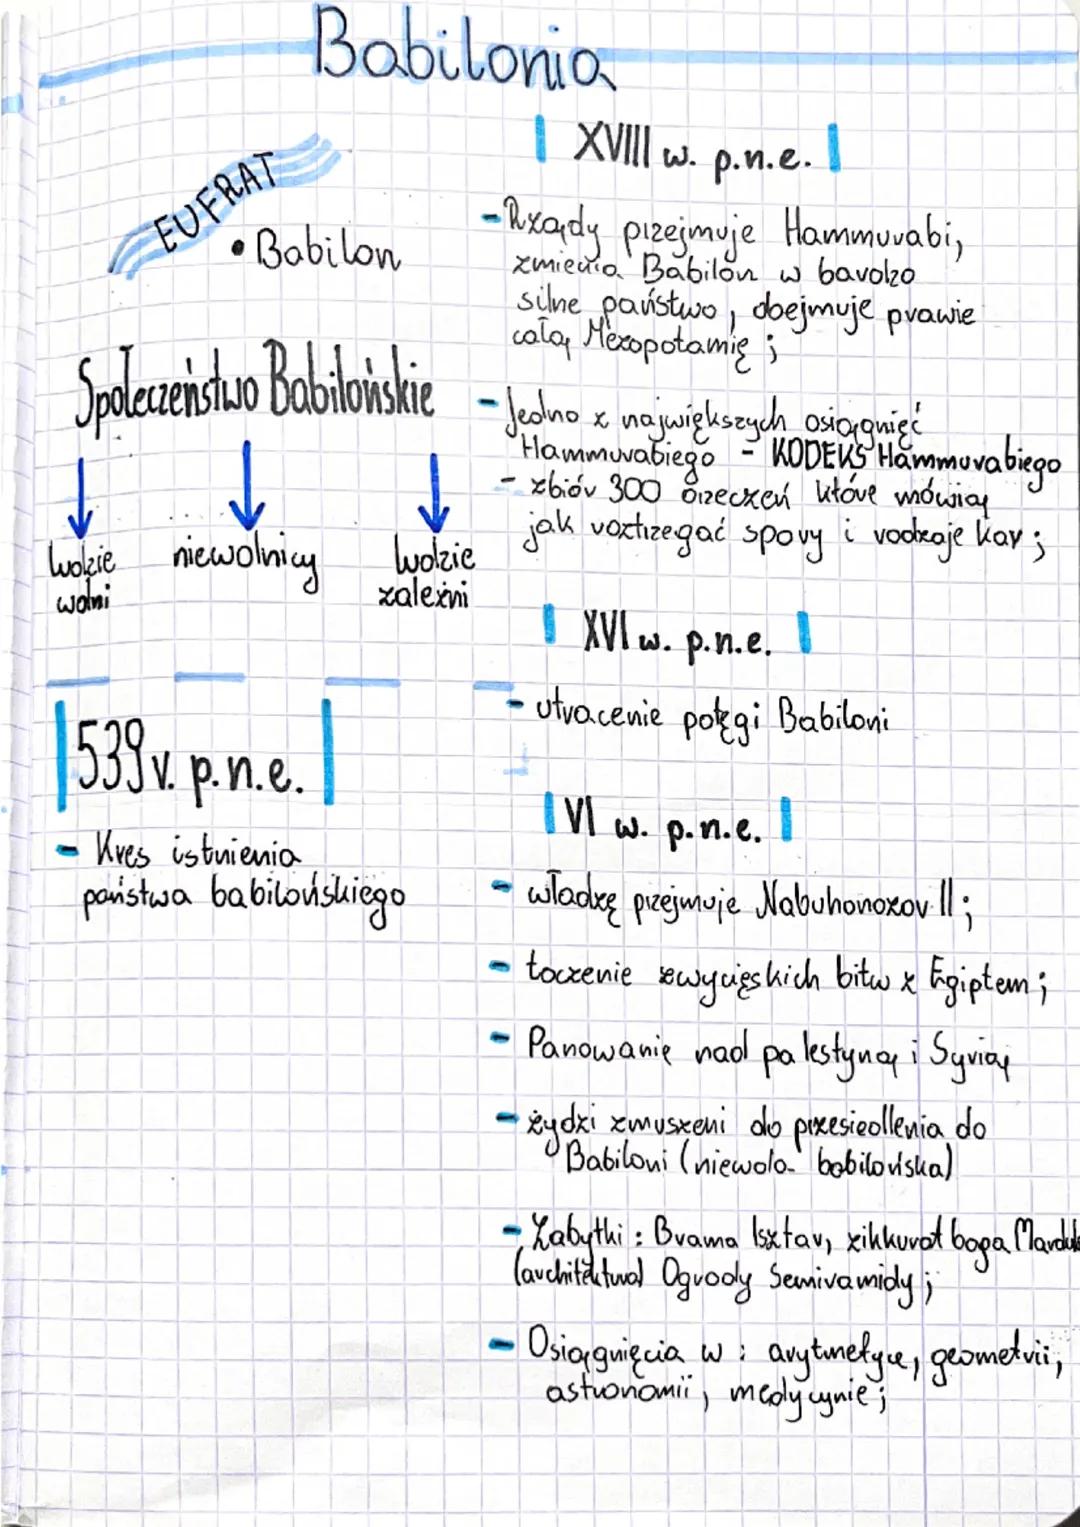 Babilonia
EUFRAT
• Babilon
Społeczeństwo Babilońskie
ludzie
wolni
niewolnicy
ludzie
zależni
539 r. p.n.e.
- Kres istnienia
państwa babilońskiego
XVIII w. p.n.e.
- Rządy przejmuje Hammurabi,
zmienia Babilon w bardzo
silne państwo, obejmuje prawie
całą Mezopotamię;
- Jedno z największych osiągnięć
Hammurabiego - KODEKS Hammurabiego
- zbiór 300 orzeczeń które mówią
jak roztrzegać spory i rodzaje kar;
XVI w. p.n.e.
- utracenie potęgi Babiloni
VI w. p.n.e.
- władzę przejmuje Nabuhonozor II;
- toczenie zwycięskich bitw z Egiptem;
- Panowanie nad palestyną i Syrią
- żydzi zmuszeni do przesiedlenia do
Babiloni (niewola babilońska)
- Zabytki: Brama Isztar, zikkurat boga Marduk
(architektura) Ogrody Semiramidy;
- Osiągnięcia w: arytmetyce, geometrii,
astronomii, medycynie;